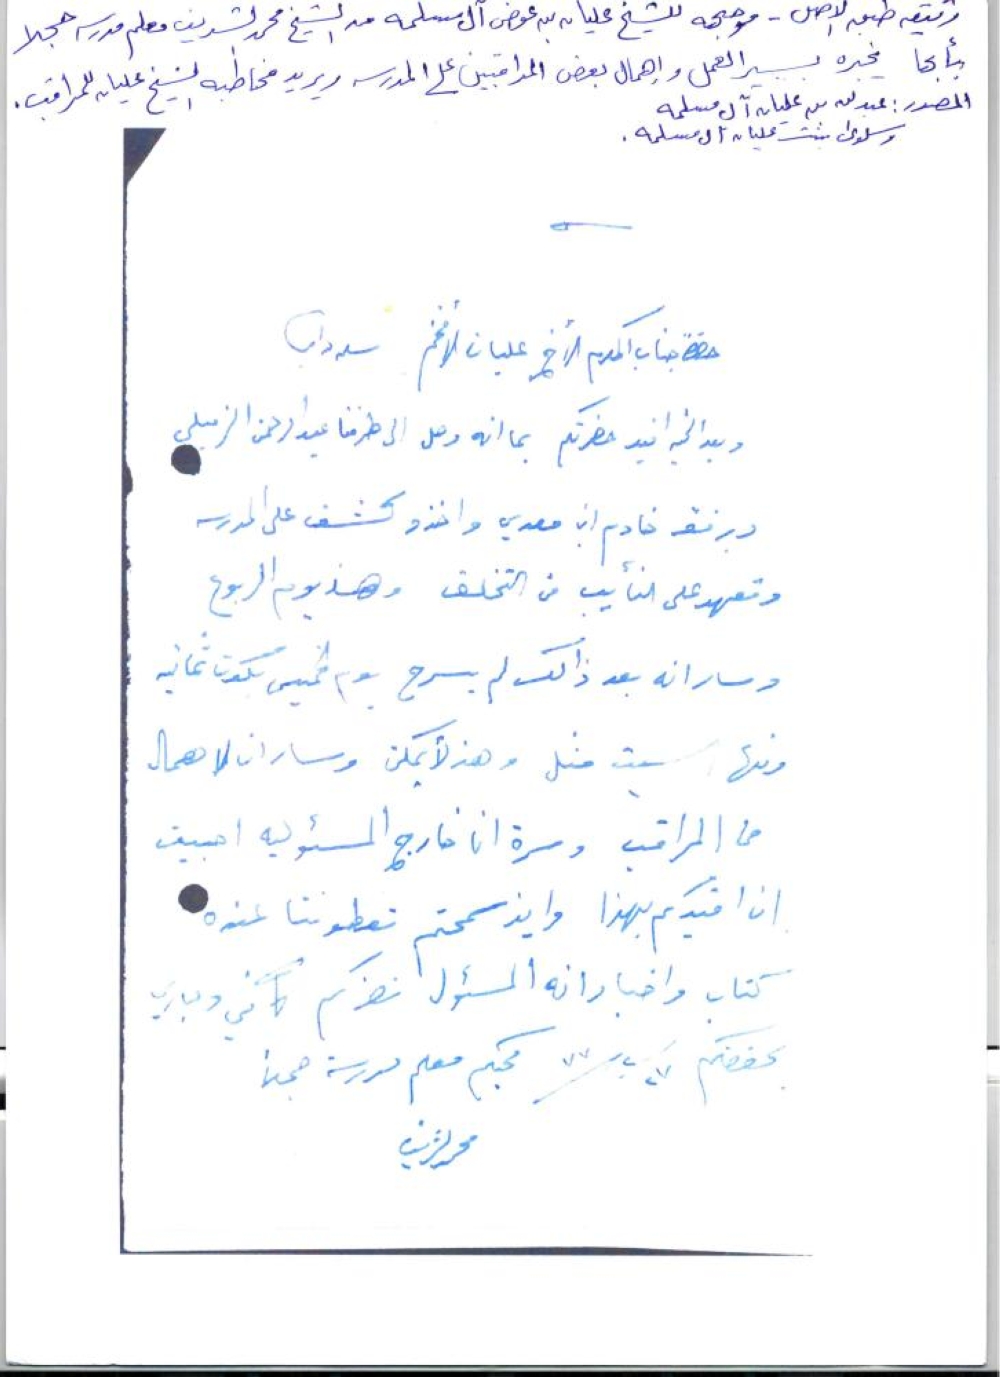 وثيقه طبق الاصل - موجهه للشيخ عليان بن عوض آل مسلمه من الشيخ محمد الشريف معلم مدرسه حجلا
بأبها يخبره بسير العمل وإهمال بعض المراقبين على المدرسه ويريد مخاطبه الشيخ عليان للمراقب.
المصدر: عبدالله بن عليان آل مسلمه
وسلوى بنت عليان آل مسلمه.
حضرة جناب المكرم الأخ عليان الأفخم
وبعد افيد حضرتكم بما انه وصل الى طرفنا عبدالرحمن الزميلي
وبرفقه خادم ابا معدي واخذو كشف على المدرسه
وتعهد على النأيب من التخلف وهذ يوم الربوع
وسار انه بعد ذالك لم يسرح يوم الخميس ثمانيه
السبت مثل وهذ لأيمكن وسار ان لاهمال
من المراقب وسرة انا خارج المسئوليه احببت
ان افيدكم بهذا وايذ سمحتم تعطوننا عنده
كتاب واخبار انه المسئول نضركم كافي وباري
يحفضكم ٧٧ محبكم معلم مدرسة حجلا
محمد الشريف